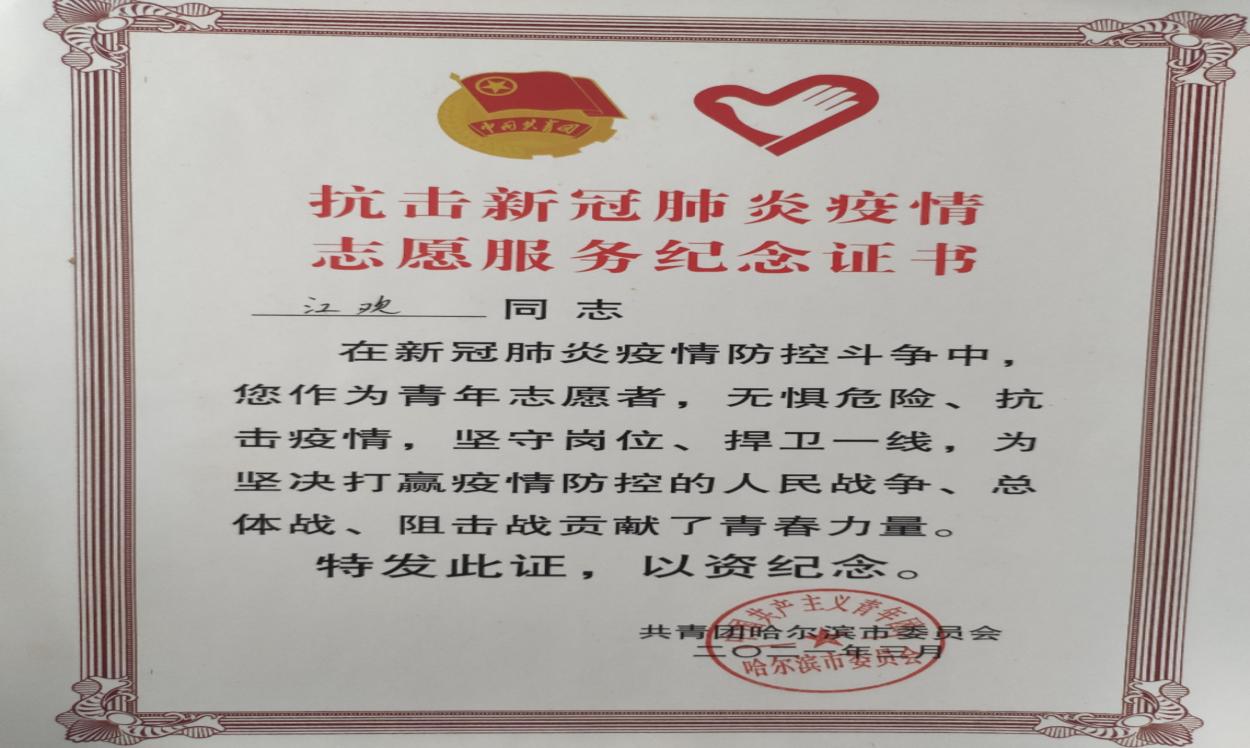 中国共青团
抗击新冠肺炎疫情
志愿服务纪念证书
江欢 同志
在新冠肺炎疫情防控斗争中，
您作为青年志愿者，无惧危险、抗
击疫情，坚守岗位、捍卫一线，为
坚决打赢疫情防控的人民战争、总
体战、阻击战贡献了青春力量。
特发此证，以资纪念。
共青团哈尔滨市委员会
二〇二一年二月
中国共产主义青年团
哈尔滨市委员会